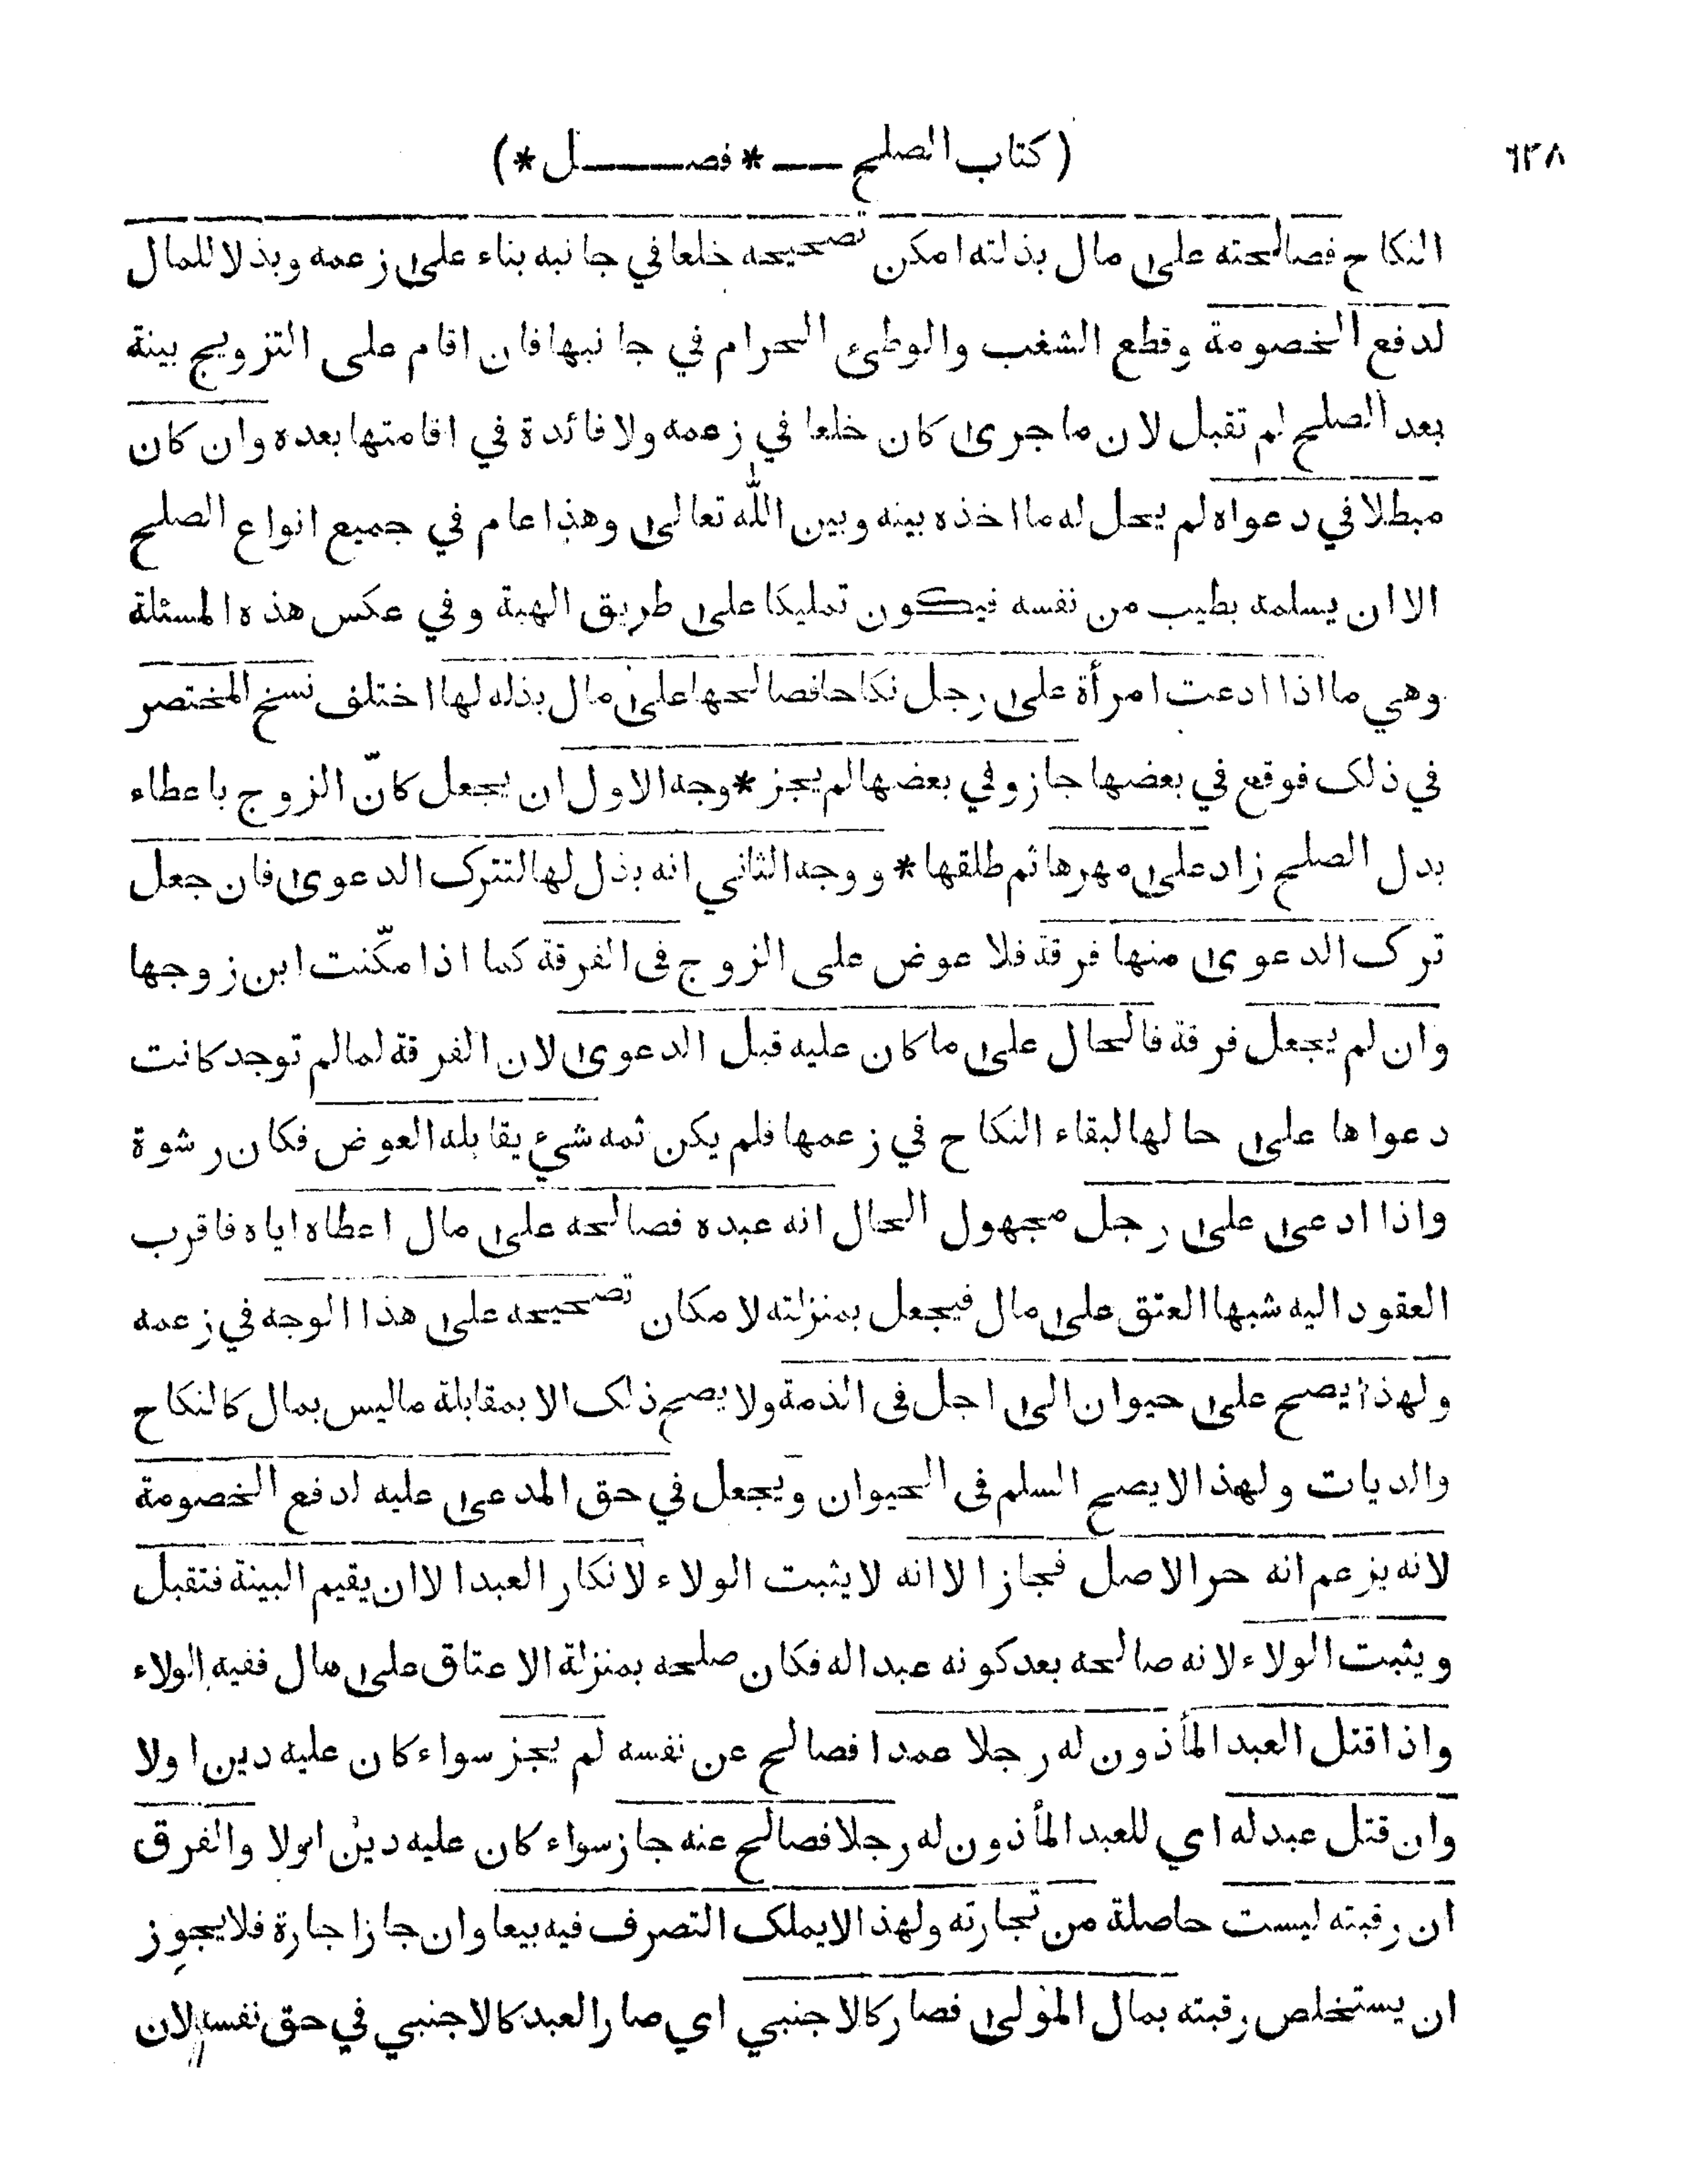 ٦٣٨
(كتاب الصلح — * فصل *)
النكاح فصالحته على مال بذلته امكن تصحيحه خلعا في جانبه بناء على زعمه وبذلا للمال
لدفع الخصومة وقطع الشغب والوطئ الحرام في جانبها فان اقام على التزويج بينة
بعد الصلح لم تقبل لان ما جرى كان خلعا في زعمه ولا فائدة في اقامتها بعده وان كان
مبطلا في دعواه لم يحل له ما اخذه بينه وبين الله تعالى وهذا عام في جميع انواع الصلح
الا ان يسلمه بطيب من نفسه فيكون تمليكا على طريق الهبة وفي عكس هذه المسئلة
وهي ما اذا ادعت امرأة على رجل نكاحا فصالحها على مال بذله لها اختلف نسخ المختصر
في ذلك فوقع في بعضها جاز وفي بعضها لم يجز * وجه الاول ان يجعل كانّ الزوج باعطاء
بدل الصلح زاد على مهرها ثم طلقها * ووجه الثاني انه بذل لها لتترك الدعوى فان جعل
ترك الدعوى منها فرقة فلا عوض على الزوج فى الفرقة كما اذا مكّنت ابن زوجها
وان لم يجعل فرقة فالحال على ما كان عليه قبل الدعوى لان الفرقة لما لم توجد كانت
دعواها على حالها لبقاء النكاح في زعمها فلم يكن ثمه شيء يقابله العوض فكان رشوة
واذا ادعى على رجل مجهول الحال انه عبده فصالحه على مال اعطاه اياه فاقرب
العقود اليه شبها العتق على مال فيجعل بمنزلته لامكان تصحيحه على هذا الوجه في زعمه
ولهذا يصح على حيوان الى اجل فى الذمة ولا يصح ذلك الا بمقابلة ما ليس بمال كالنكاح
والديات ولهذا لا يصح السلم فى الحيوان ويجعل في حق المدعى عليه لدفع الخصومة
لانه يزعم انه حر الاصل فجاز الا انه لا يثبت الولاء لانكار العبد الا ان يقيم البينة فتقبل
ويثبت الولاء لانه صالحه بعد كونه عبدا له فكان صلحه بمنزلة الاعتاق على مال ففيه الولاء
واذا قتل العبد المأذون له رجلا عمدا فصالح عن نفسه لم يجز سواء كان عليه دين اولا
وان قتل عبد له اي للعبد المأذون له رجلا فصالح عنه جاز سواء كان عليه دين اولا والفرق
ان رقبته ليست حاصلة من تجارته ولهذا لا يملك التصرف فيه بيعا وان جاز اجارة فلا يجوز
ان يستخلص رقبته بمال المولى فصار كالاجنبي اي صار العبد كالاجنبي في حق نفسه لان